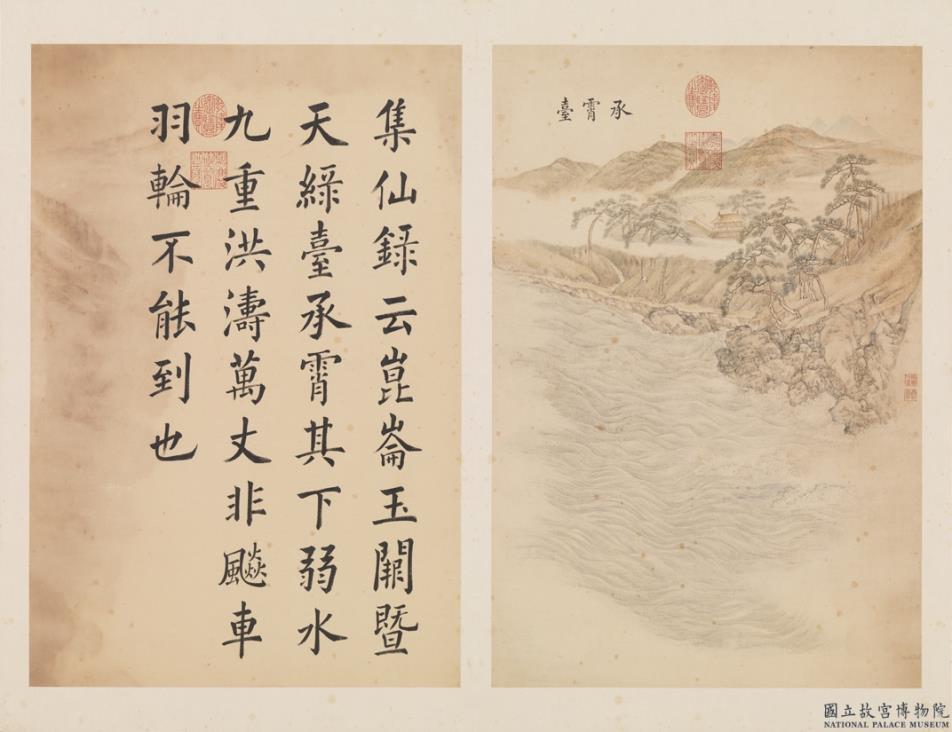 承霄臺
集仙錄云崑崙玉闕暨
天綠臺承霄其下弱水
九重洪濤萬丈非飈車
羽輪不能到也
國立故宮博物院
NATIONAL PALACE MUSEUM